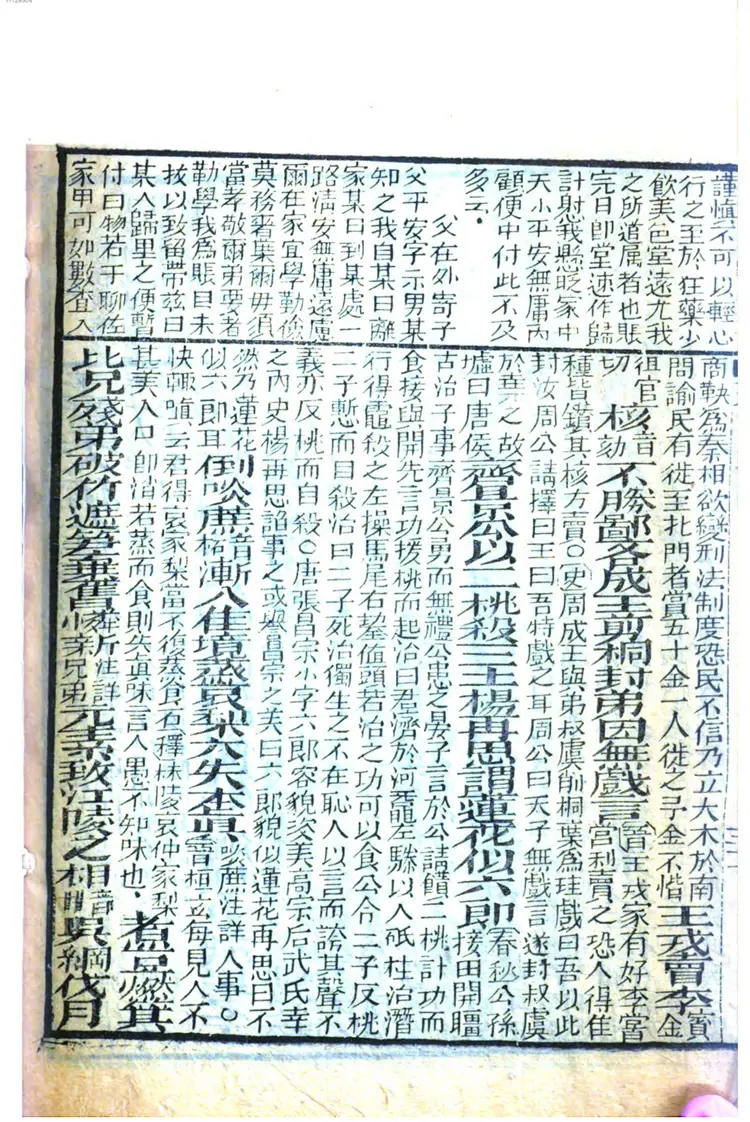 謹慎不可以輕心
行之至於狂藥少
飲美色宜遠尤我
之所道屬者也賬
完日即望速作歸
計慰我懸眂家中
大小平安無庸內
顧便中付此不及
多云
父在外寄子
父平安字示男某
知之我自某日離
家某日到某處一
路淸安無庸遠慮
爾在家宜學勤儉
莫務奢華爾毋須
當孝敬爾弟要者
勤學我爲賬目未
扱以致留帶玆因
某人歸里之便暫
付曰物若干聊佐
家用可如數查入
商鞅爲秦相欲變刑法制度恐民不信乃立大木於南
門諭民有徙至北門者賞五十金一人徙之予金不惜王戎賣李寳金
徂官切核音劾不勝鄙吝成王剪桐封弟因無戲言晉王戎家有好李當
當利賣之恐人得佳
種皆鑽其核方賣〇史周成王與弟叔虞削桐葉爲珪戲曰吾以此
封汝周公請擇日王曰吾特戲之耳周公曰天子無戲言遂封叔虞
於堯之故墟曰唐侯齊景公以二桃殺三士楊再思謂蓮花似六郎春秋公孫
接田開疆
古治子事齊景公勇而無禮公患之晏子言於公請饋二桃計功而
食接與開先言功援桃而起治曰君濟於河黿左驂以入砥柱治潛
行得黿殺之左操馬尾右挈黿頭若治之功可以食公令二子反桃
二子慙而自殺治曰二子死治獨生之不在恥人以言而誇其聲不
義亦反桃而自殺〇唐張昌宗小字六郎容貌姿美高宗后武氏幸
之內史楊再思諂事之或譽昌宗之美曰六郎貌似蓮花再思曰不
然乃蓮花似六郎耳倒啖蔗漸入佳境蒸哀梨大失本真啖蔗注詳人事〇
晉桓玄每見人不
快輙嗔云君得哀家梨當不復蒸食否釋秣陵哀仲家梨
甚美入口卽消若蒸而食則失真味言人愚不知味也煮豆燃萁
比兄殘弟砍竹遮筍棄舊憐新注詳兄弟元素致江陵之柑吳綱伐月